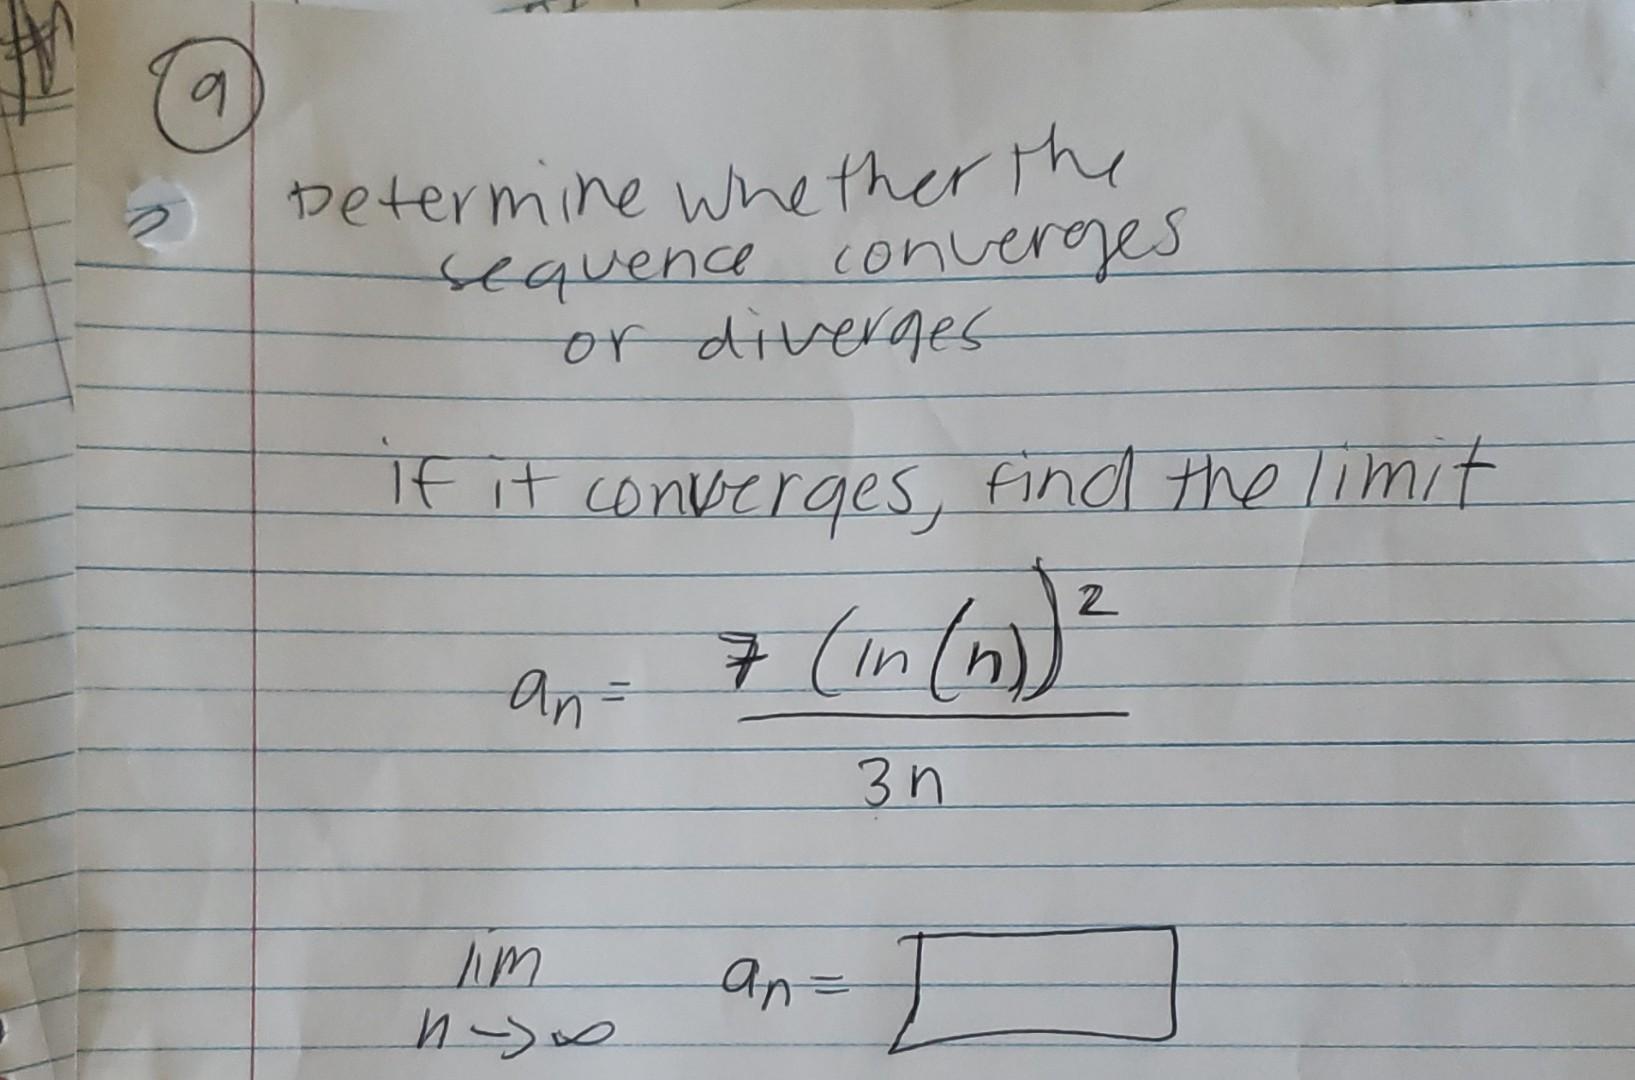 9
Determine whether the
sequence converges
or diverges
if it converges, find the limit
an = 7 (ln(n))²
3n
lim an =
n→∞